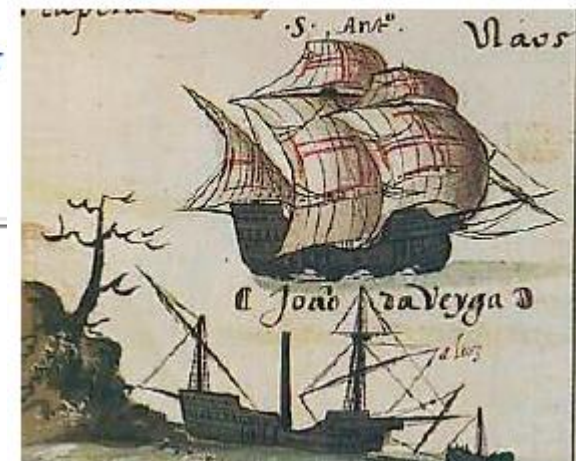 ·S· Antº.
Náos
( João da Veyga )